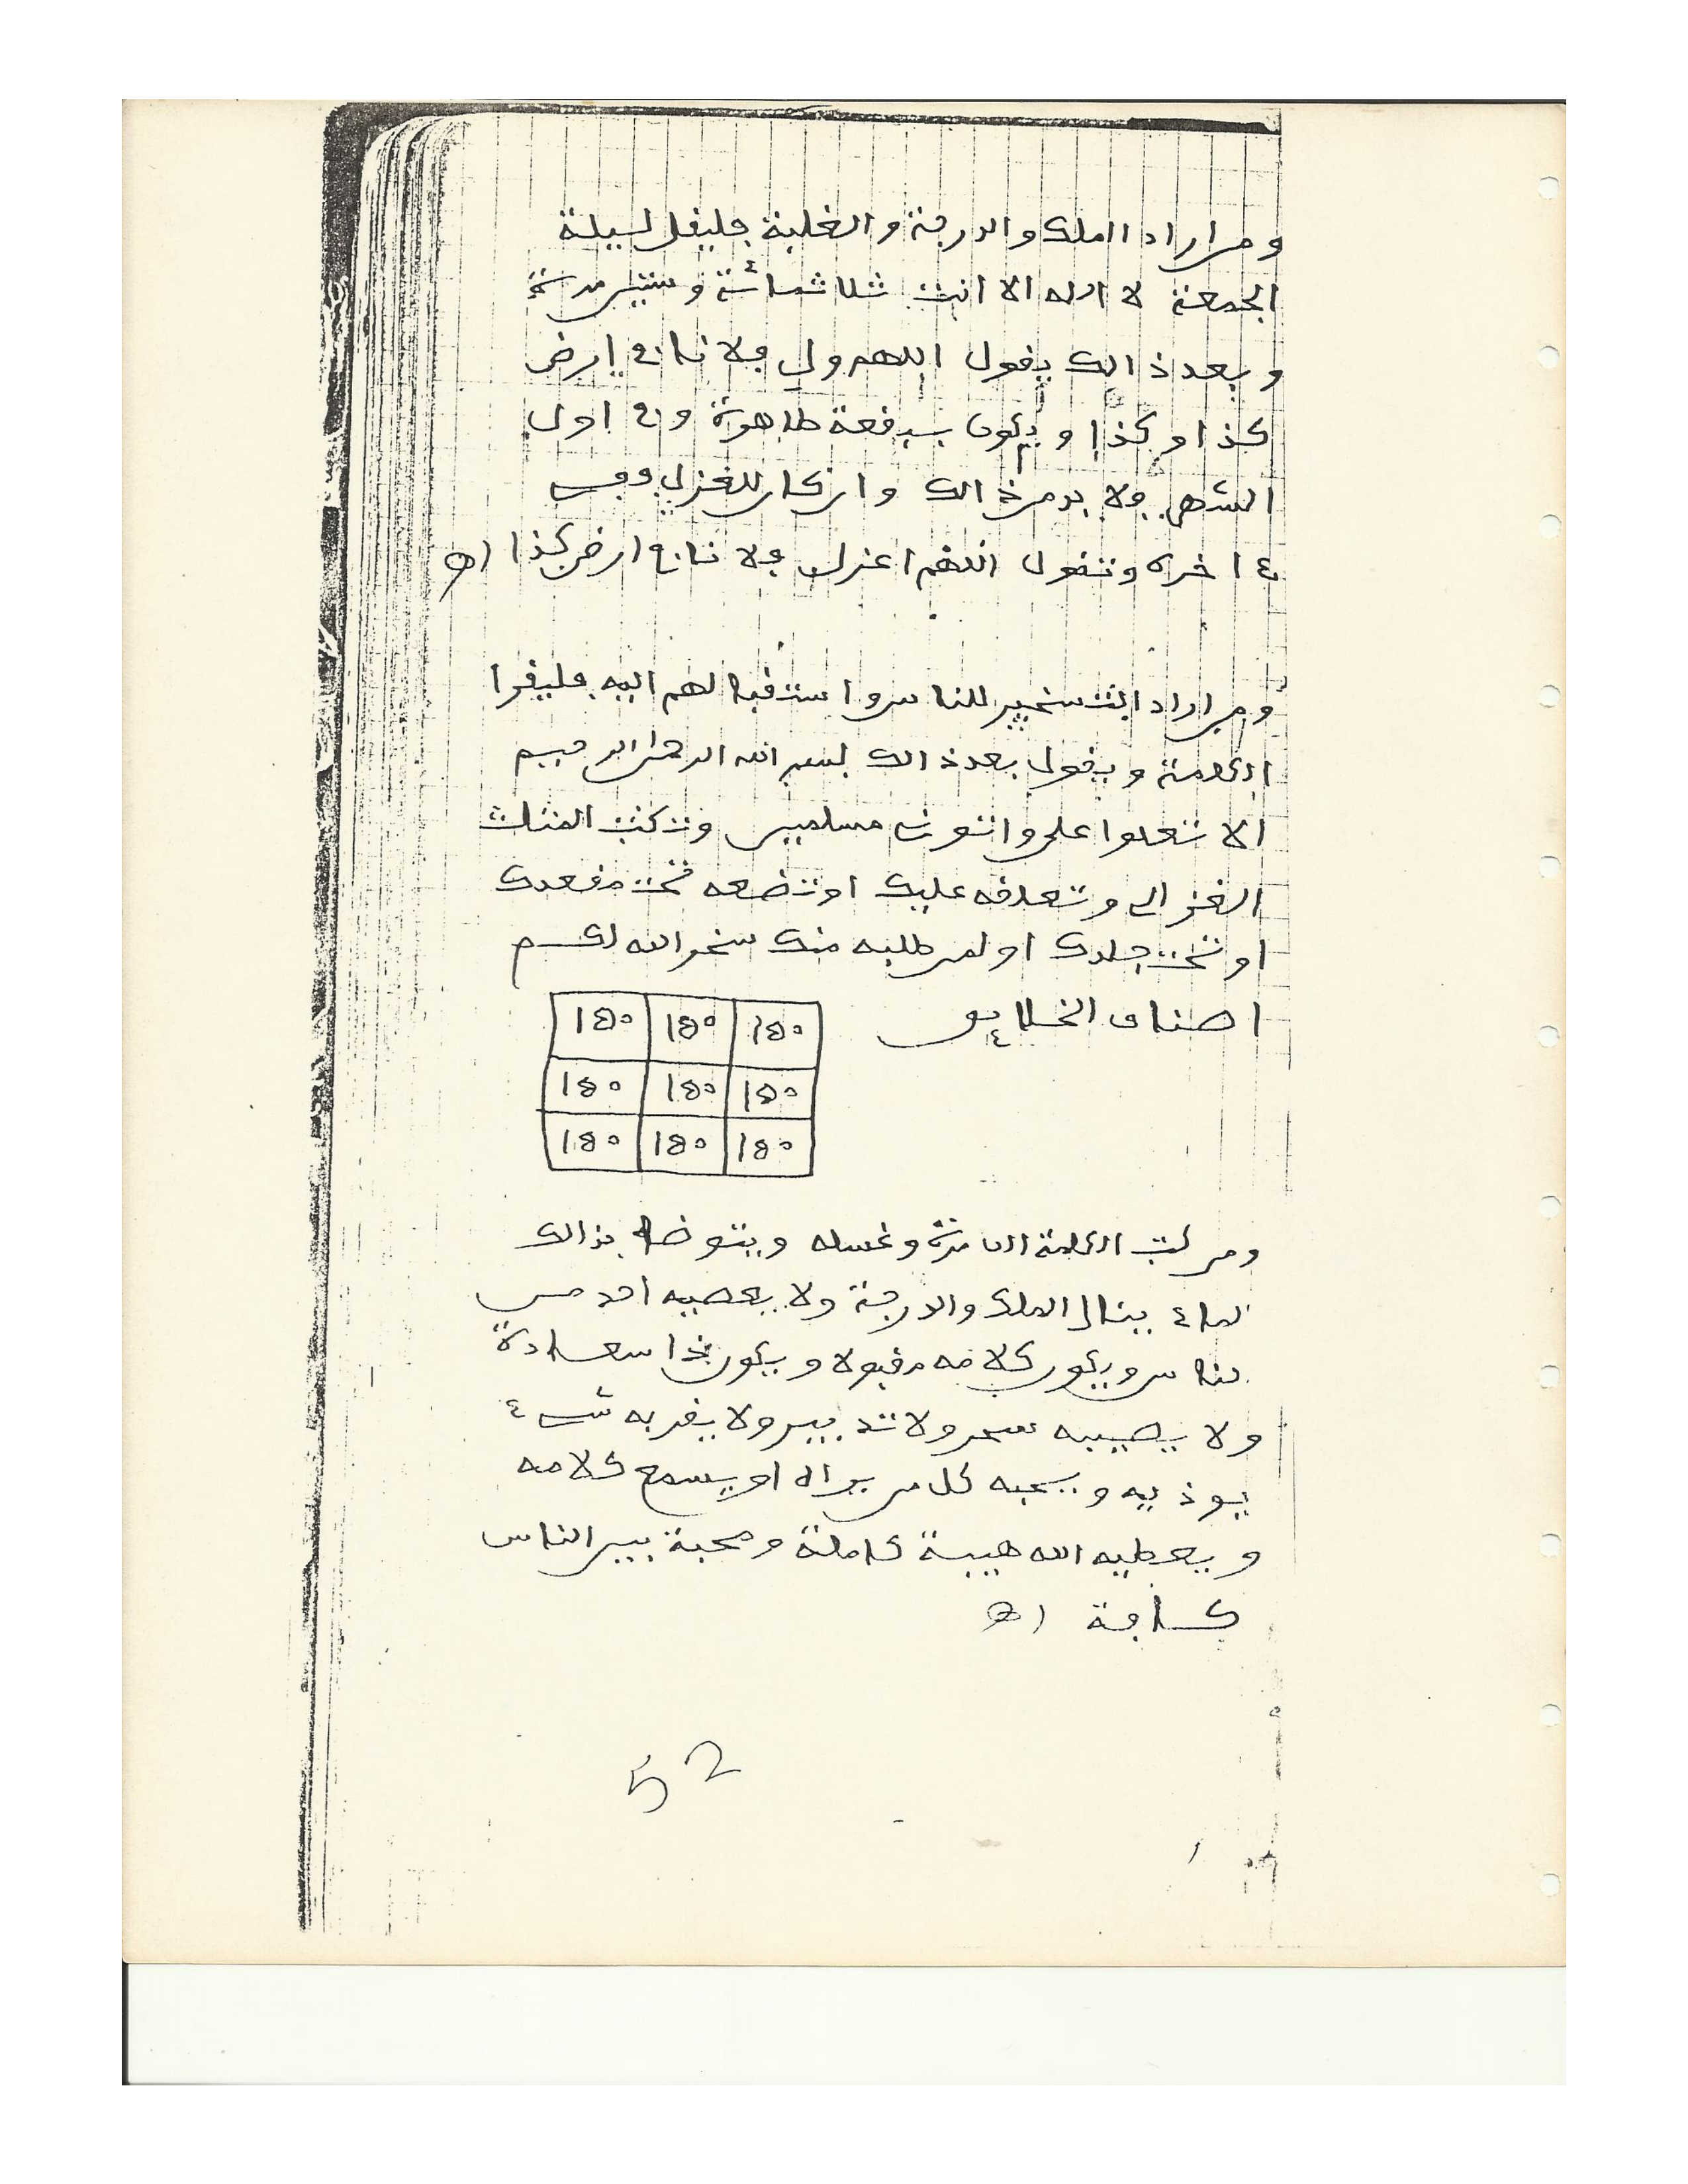 ومن اراد الملك والدرجة والغلبة فليقل ليلة
الجمعة لا اله الا انت ثلاثمائة وستين مرة
وبعد ذالك يقول اللهم ول فلانا في ارض
كذا وكذا ويكون ببقعة طاهرة وفي اول
الشهر ولا بد من ذالك وان كان للغزل ففي
ءاخره وتقول اللهم اعزل فلانا في ارض كذا اه
ومن اراد التسخير للناس واستقبالهم اليه فليقرا
الكلمة ويقول بعد ذالك بسم الله الرحمن الرحيم
الا تعلوا علي واتوني مسلمين وتكتب المثلث
الغزالي وتعلقه عليك او تضعه تحت مقعدك
او تحت جلدك او لمن طلبه منك سخر الله لكم
اصناف الخلايق
١٥٠ ١٥٠ ١٥٠
١٥٠ ١٥٠ ١٥٠
١٥٠ ١٥٠ ١٥٠
ومن كتب الكلمة مرة وغسله ويتوضا بذالك
الماء ينال الملك والدرجة ولا يعصيه احد من
الناس ويكون كلامه مقبولا ويكون ذا سعادة
ولا يصيبه سحر ولا تدبير ولا يقربه شيء
يوذيه ويحبه كل من يراه او يسمع كلامه
ويعطيه الله هيبة كاملة ومحبة بين الناس
كافة اه
52